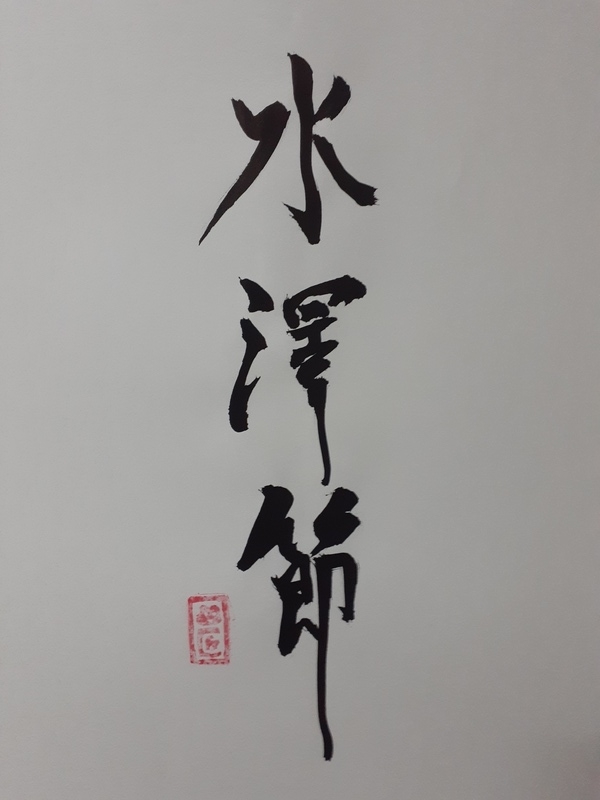 水澤節